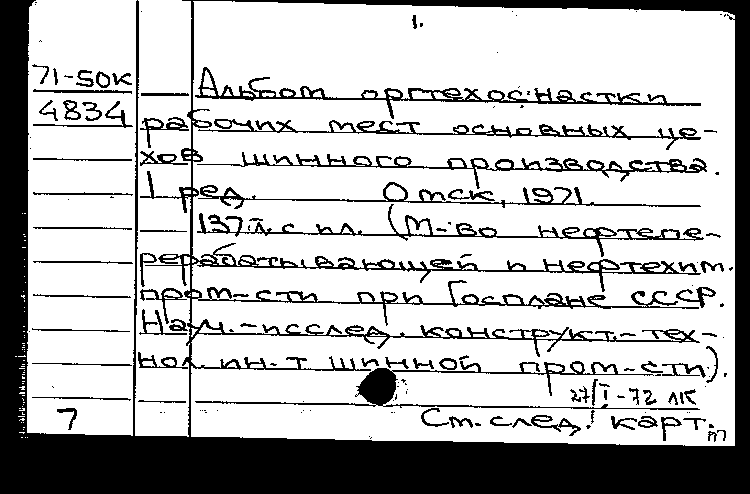 1.
71-50к Альбом оргтехоснастки
4834 рабочих мест основных це-
хов шинного производства.
1 ред. Омск, 1971.
137 л. с ил. (М-во нефтепе-
рерабатывающей и нефтехим.
пром-сти при Госплане СССР.
Науч.-исслед. конструкт.-тех-
нол. ин-т шинной пром-сти).
27/I-72
7 См. след. карт.